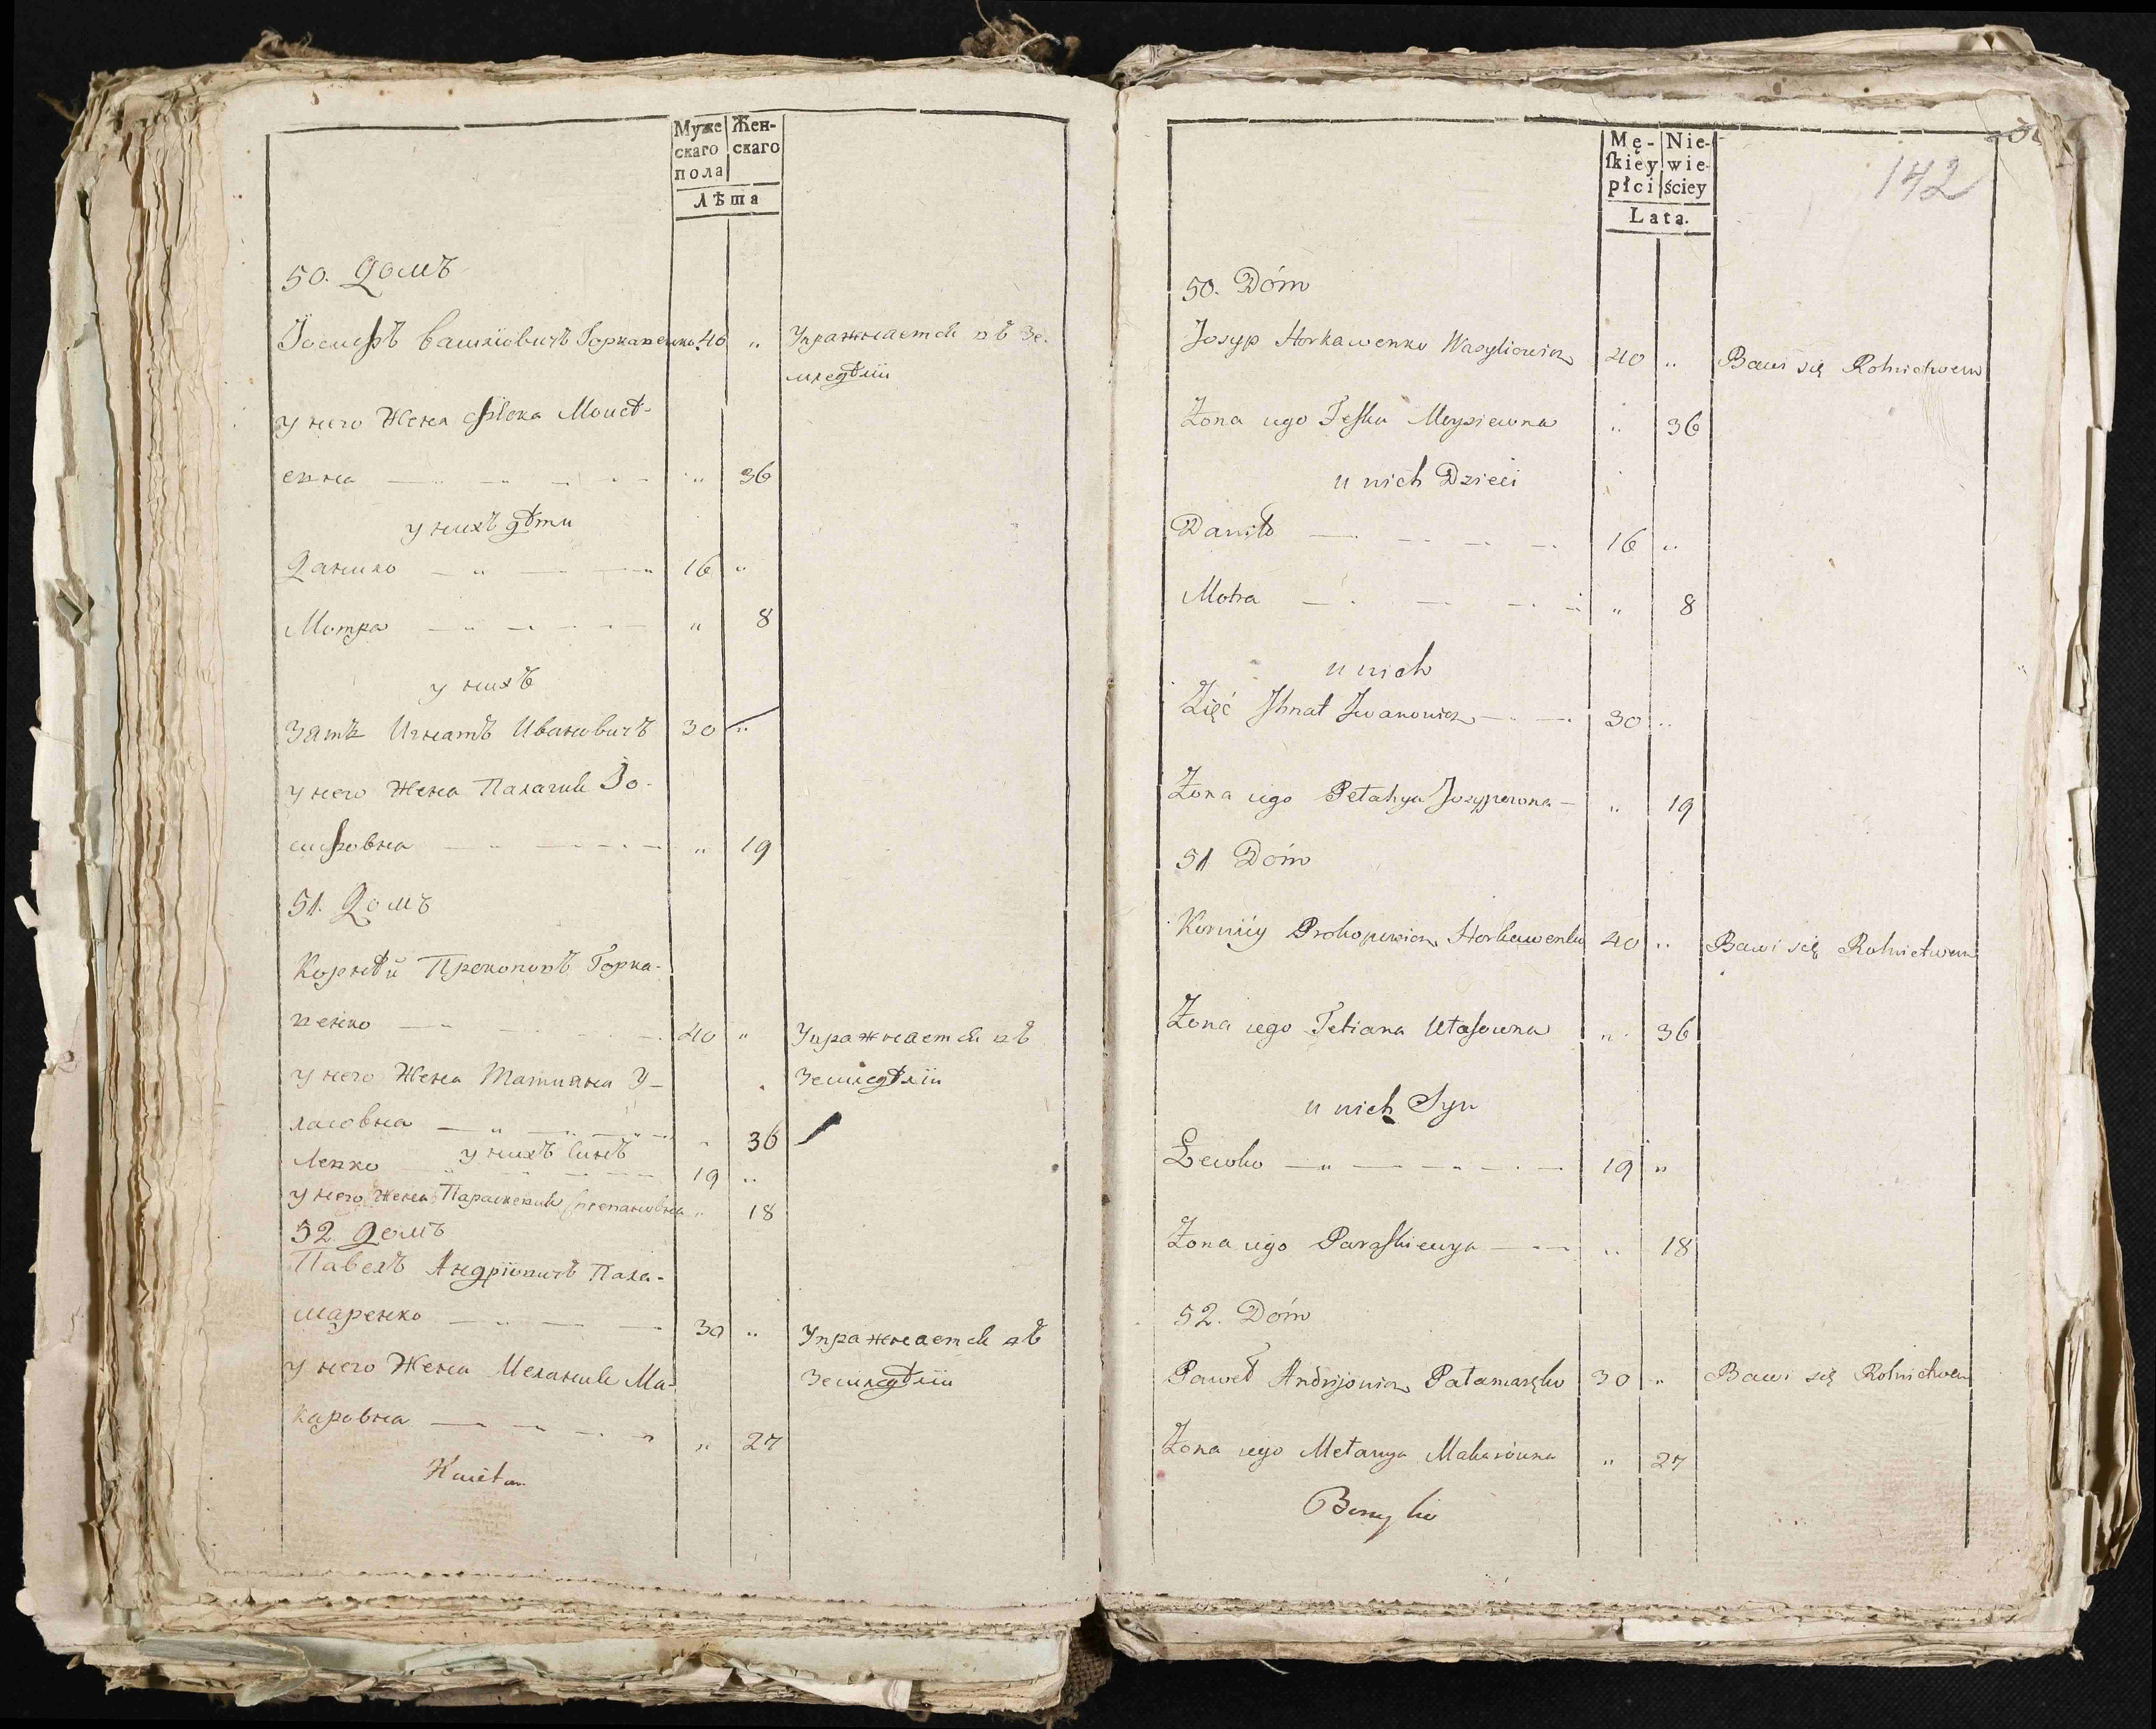 Муже
скаго
пола
Жен-
скаго
Лѣта
50. Домъ
Іосифъ Василіовичъ Горкавенко 40 „ Упражнается въ Зе.
мледѣліи
у него Жена Ѳеска Моисѣ-
евна „ 36
у нихъ дѣти
Данило 16 „
Мотра „ 8
у нихъ
Зять Игнатъ Ивановичъ 30 „
у него Жена Палагия Іо-
сифовна „ 19
51. Домъ
Корнѣй Прокоповъ Горка-
венко 40 „ Упражнается въ
у него Жена Татияна У- Земледѣліи
ласовна „ 36
у нихъ Синъ
Левко 19 „
у него жена Параскевия Степановна „ 18
52 Домъ
Павелъ Андріовичъ Пала-
маренко 30 „ Упражнается въ
у него Жена Мелания Ма- Земледѣліи
каровна „ 27
Mę-
ſkiéy
płci
Nie-
wie-
ściey
Lata.
142
50. Dóm
Josyp Horkawenko Wasyliowicz 40 „ Bawi się Rolnictwem
Żona iego Feſka Moysiewna „ 36
u nich Dzieci
Daniło 16 „
Motra „ 8
u nich
Zięć Jhnat Jwanowicz 30 „
Żona iego Pełahya Jozypowna „ 19
51 Dóm
Korniiy Prokopowicz Horkawenko 40 „ Bawi się Rolnictwem
Żona iego Tetiana Ułasowna „ 36
u nich Syn
Lewko 19 „
Żona iego Paraſkiewya „ 18
52. Dóm
Paweł Andrijowicz Pałamaręko 30 „ Bawi się Rolnictwem
Żona iego Mełanya Makarówna „ 27